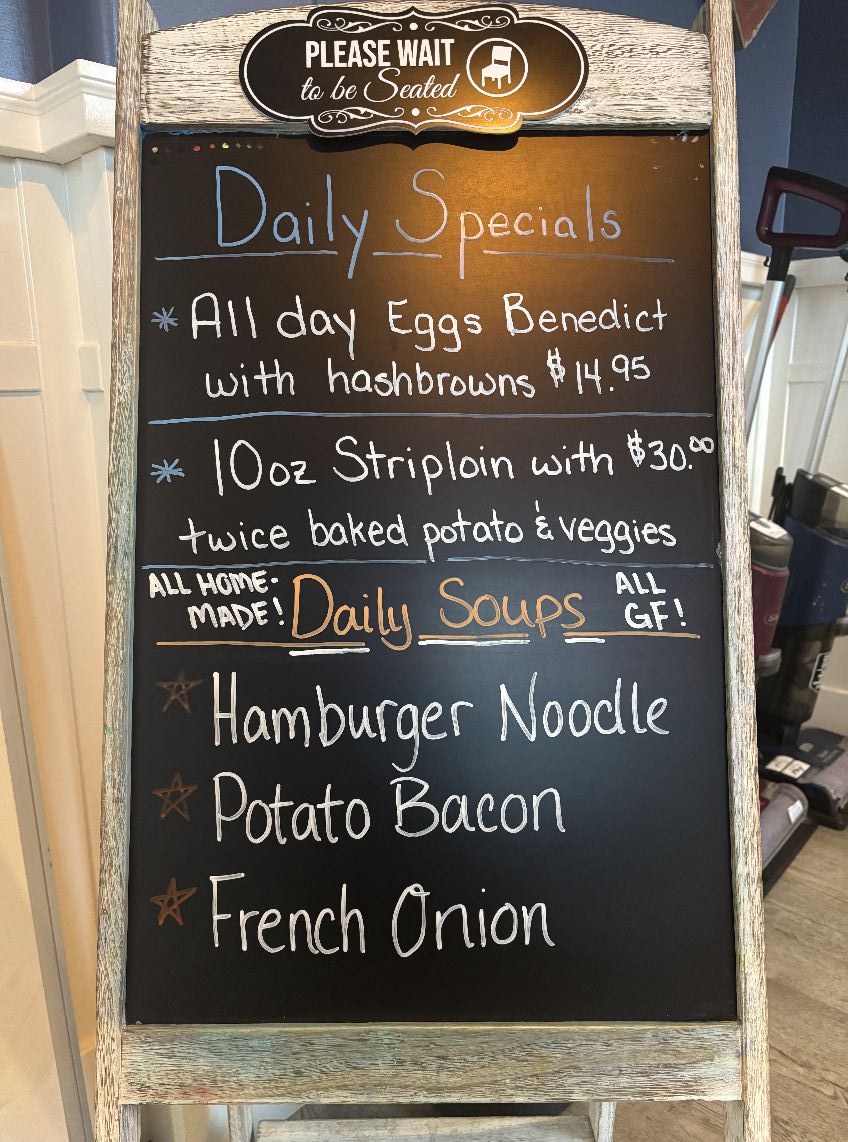 PLEASE WAIT
to be Seated
Daily Specials
* All day Eggs Benedict
with hashbrowns $14.95
* 10oz Striploin with $30.00
twice baked potato & veggies
ALL HOME-
MADE!
Daily Soups
ALL
GF!
Hamburger Noodle
Potato Bacon
French Onion